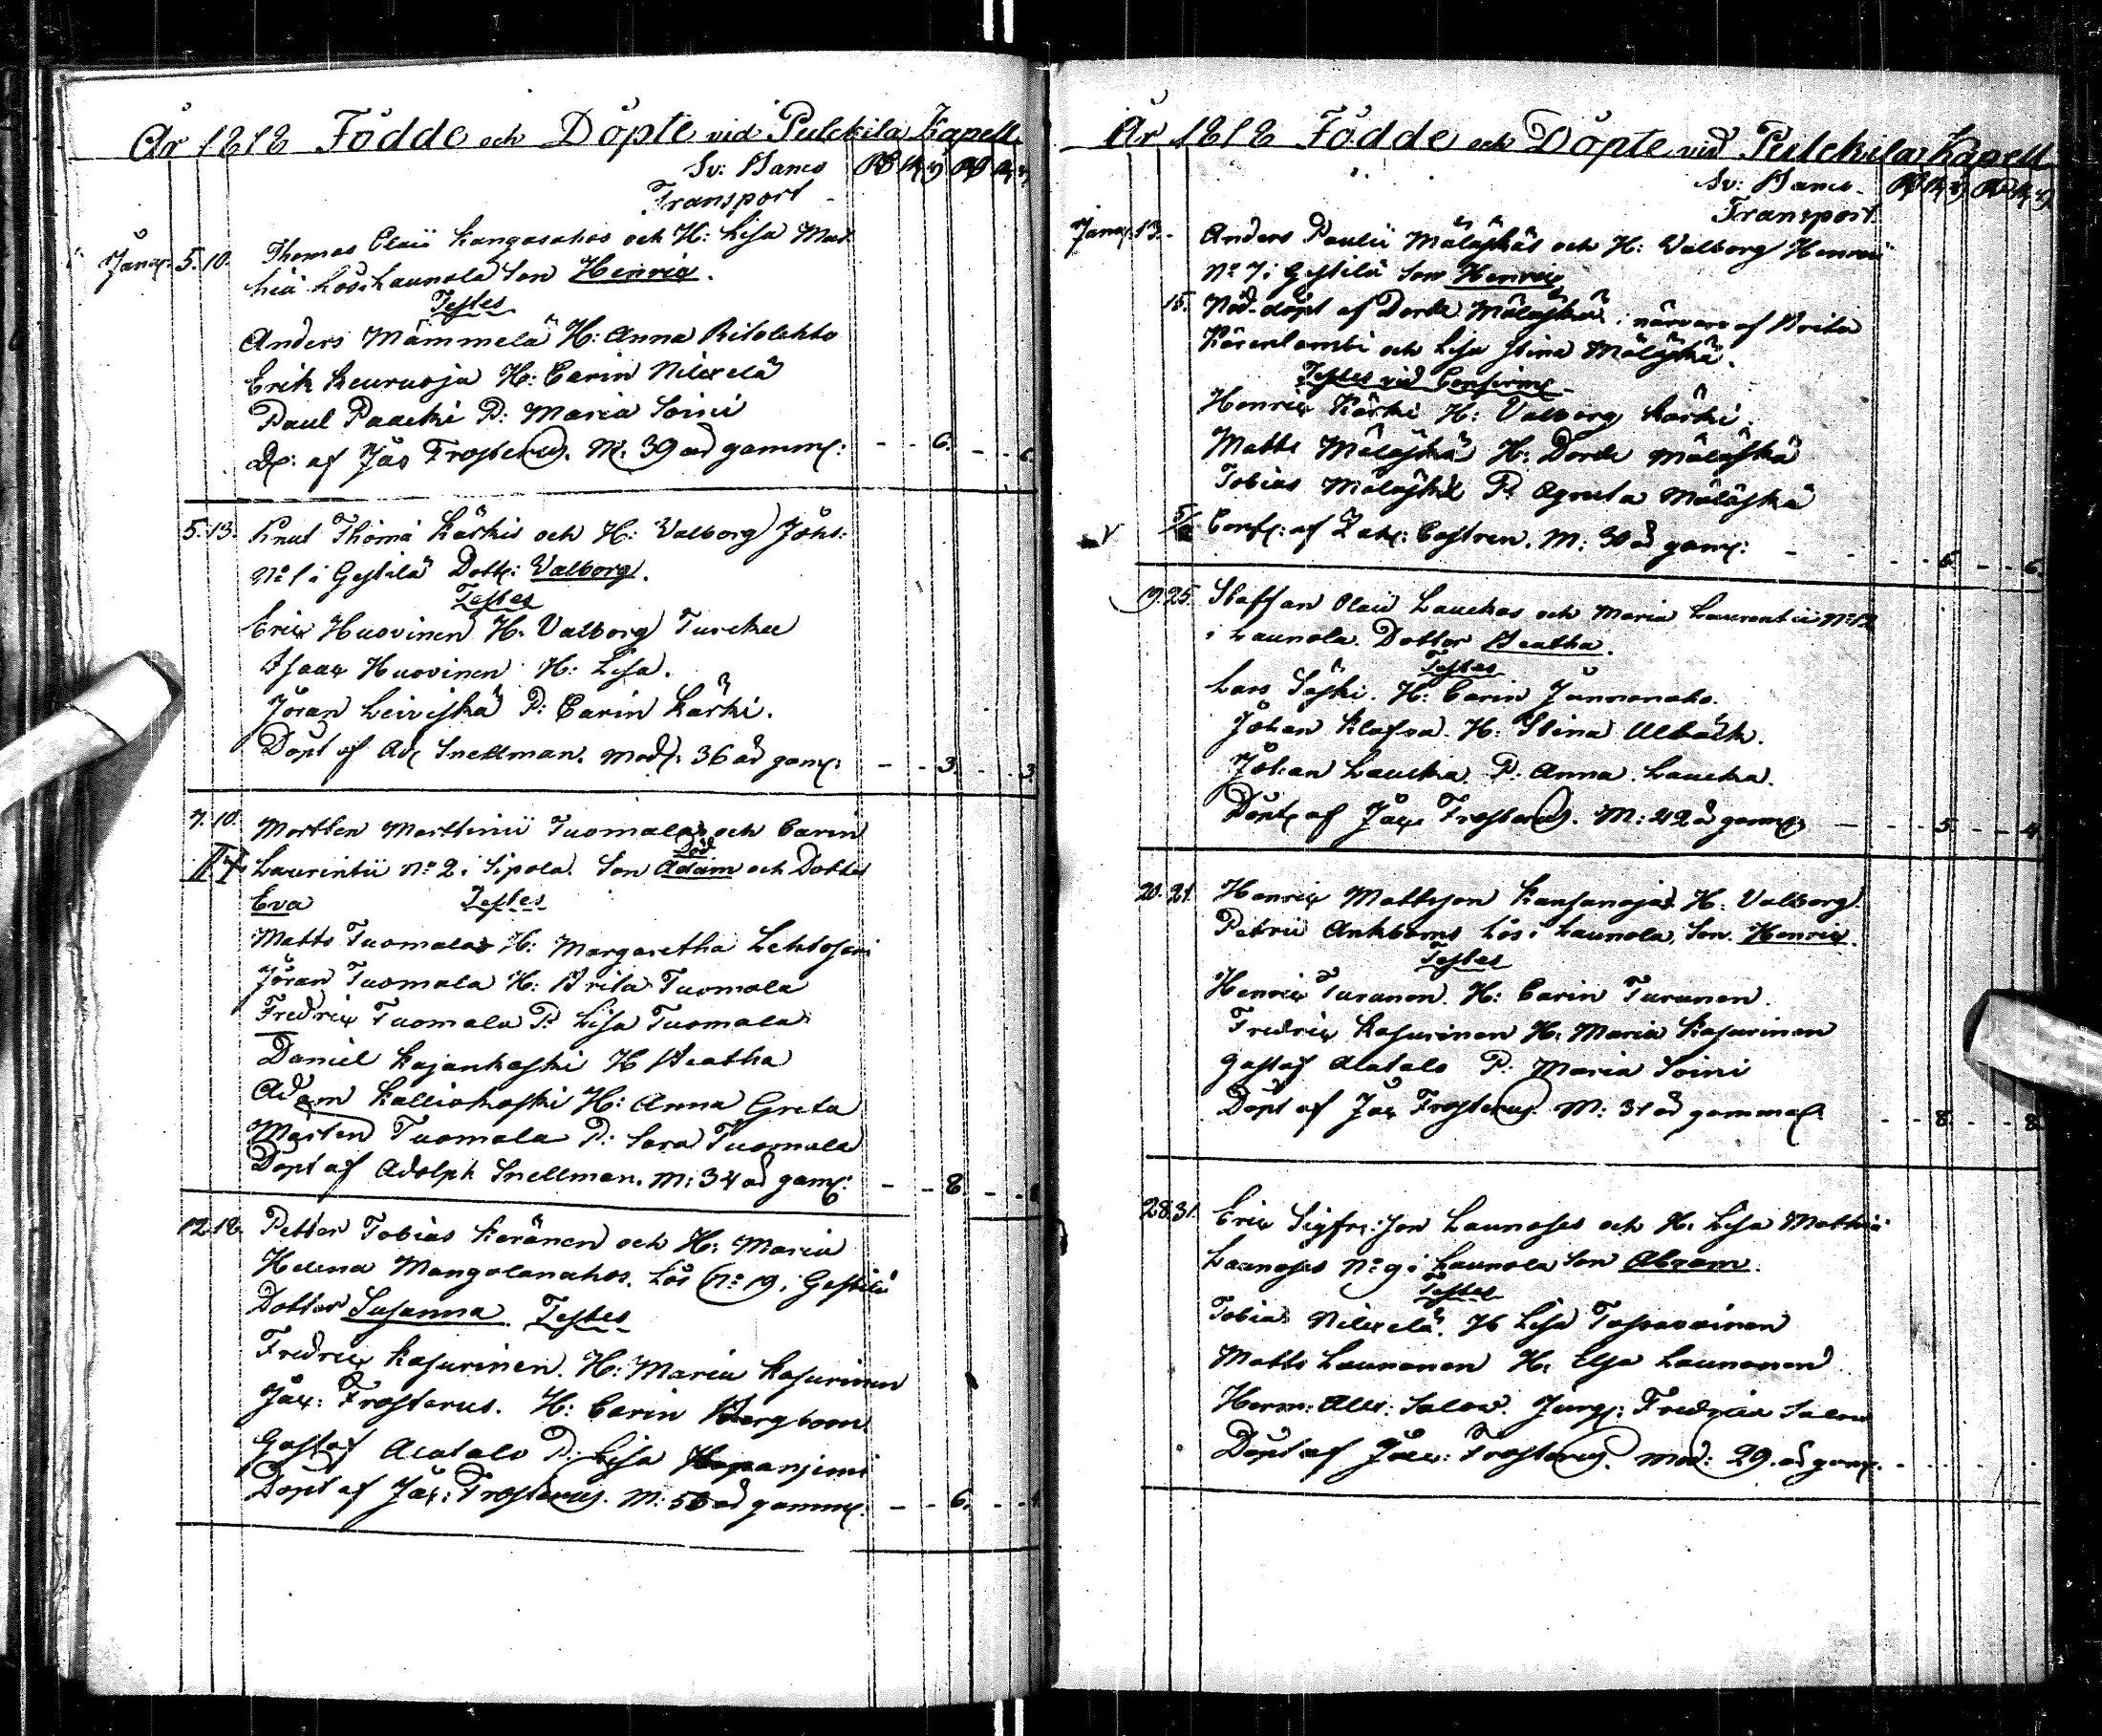 År 1818 Födde och Döpte vid Pulckila Kapell
Sv: Banco
Transport
Januar. 5. 10. Thomas Olaii Kangasahos och H: Lisa Mat
hiä Lös i Launola Son Henric.
Testes
Anders Mämmelä H: Anna Ritolehto
Erik Keurusja H: Carin Nilexelä
Paul Paacki P: Maria Soini
Dp: af Jac Frosterus. M. 39 åd gamml: - - 6. - - 6
5. 13. Knut Thomä Kärkis och H: Valborg Johs:
No 1 i Gestilä Dott: Valborg.
Testes
Eric Huovinen H. Valborg Turcka
Isaac Huovinen H: Lisa.
Jöran Leiviskä P: Carin Kärki.
Döpt af Ad Snellman. Mod: 36 åd gaml: - - 3. - - 3.
7. 10. Mortten Marttinii Tuomalas och Carin
Laurintii No 2 i Sipola. Son Adam och Dotter
död
Eva Testes
Matts Tuomala H: Margaretha Lehtosari
Jöran Tuomala H: Brita Tuomala
Fredric Tuomala P: Lisa Tuomala
Daniel Kajankoski H Beatha
Adam Kalliokoski H: Anna Greta
Marten Tuomala P: Sara Tuomala
Döpt af Adolph Snellman. M: 34 åd gaml: - - 8 - -
12. 18. Petter Tobias Keränen och H: Maria
Helena Mangolanahos. Lös No 19, i Gestilä
Dotter Susanna. Testes
Fredric Kasurinen. H: Maria Kasurinen
Jac: Frosterus. H: Carin Bergbom.
Gustaf Alatalo P: Lisa Haapanjemi
Döpt af Jac: Frosterus. M: 50 åd gamml. - - 6. - -
År 1818 Födde och Döpte vid Pulckila Kapell
Sv: Banco
Transport
Januar. 13. Anders Paulii Mäläskäs och H: Valborg Henrici
No 7 i Gestilä Son Henric
15. Nöd-döpt af Dorde Mäläskä i närvaro af Brita
Kärenlambi och Lisa Stina Mäläskä.
Testes vid Confirm
Henric Kärki H: Valborg Kärki.
Matts Mäläskä H: Dorde Mäläskä
Tobias Mäläskä P: Agneta Mäläskä
Conf: af Zach: Castren. M: 30 åd gaml: - - 6. - - 6.
17. 25. Staffan Olaii Lauckas och Maria Laurentii No 12
i Launola. Dotter Beatha.
Testes
Lars Säski. H: Carin Junnonaho.
Johan Klasva. H: Stina Ulbäck.
Johan Laucka. P: Anna Laucka.
Döpt af Jac Frosterus. M: 42 åd gaml - - 5. - - 4.
20. 21. Henric Mattsson Kansanojas H. Valborg
Petrii Ankboms Lös i Launola, Son Henric.
Testes
Henric Turunen. H: Carin Turunen.
Fredric Kasurinen H: Maria Kasurinen
Gustaf Alatalo P: Maria Soini
Döpt af Jac Frosterus. M: 31 åd gammal. - - 8. - - 8.
28. 31. Eric Sigfr: Son Launoses och H. Lisa Mathiä
Launoses No 9 i Launola Son Abram.
Testes
Tobias Nilexelä. H Lisa Tossavainen
Matts Launonen H. Elsa Launonen
Herm: Alex: Salow. Jungf: Fredrica Salow
Döpt af Jac: Frosterus. Mod: 29. åd gaml. - -